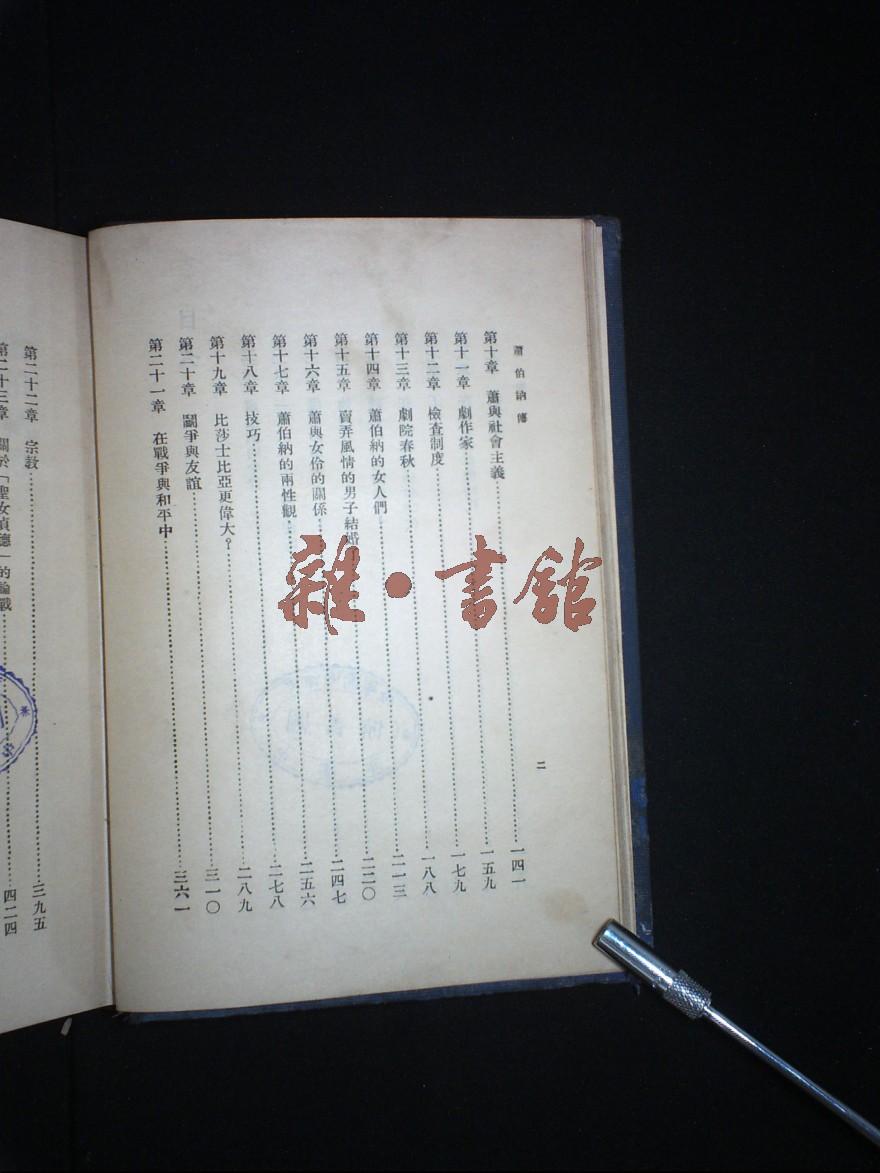 蕭伯納傳
二
第十章 蕭與社會主義……一四一
第十一章 劇作家……一五九
第十二章 檢查制度……一七九
第十三章 劇院春秋……一八八
第十四章 蕭伯納的女人們……二一三
第十五章 賣弄風情的男子結婚……二二〇
第十六章 蕭與女伶的關係……二四七
第十七章 蕭伯納的兩性觀……二五六
第十八章 技巧……二七八
第十九章 比莎士比亞更偉大?……二八九
第二十章 鬪爭與友誼……三一〇
第二十一章 在戰爭與和平中……三六一
第二十二章 宗教……三九五
第二十三章 關於「聖女貞德」的論戰……四二四
雜·書館